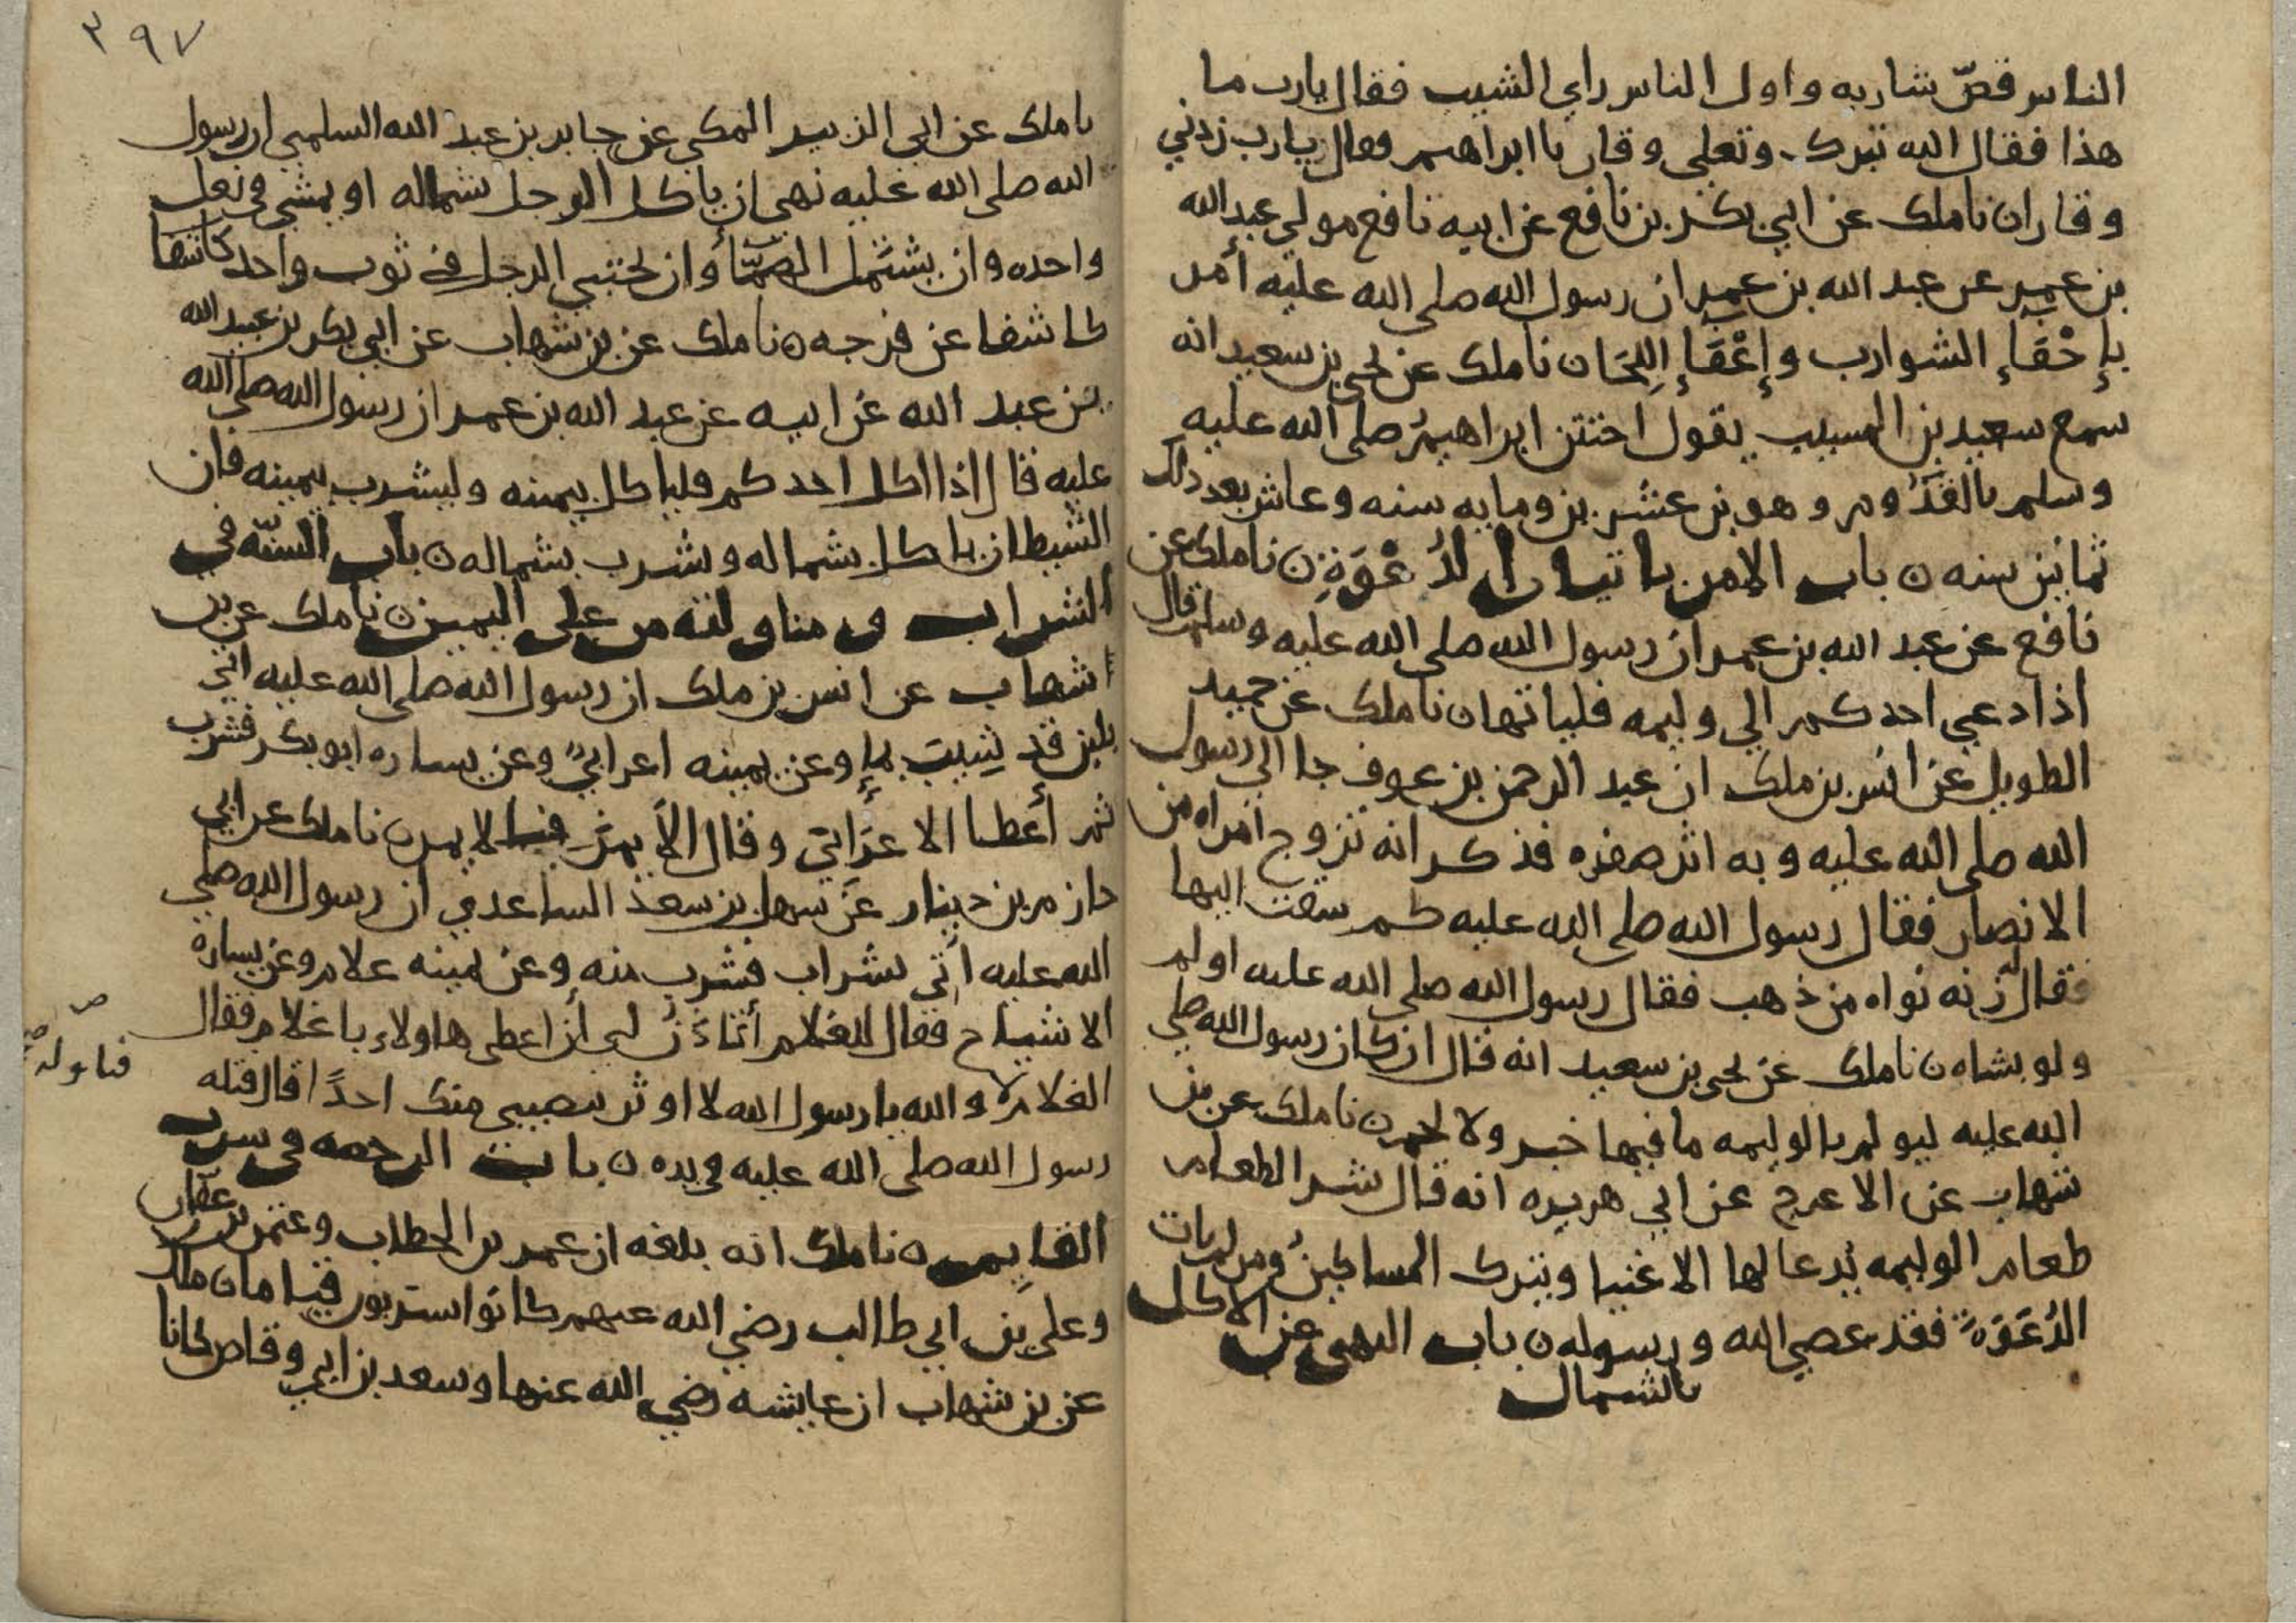 الناس قصّ شاربه واول الناس راي الشيب فقال يارب ما
هذا فقال الله تبرك وتعلى وقار يا ابراهيم فقال يارب زدني
وقارا ن نا ملك عن ابي بكر بن نافع عن ابيه نافع مولي عبد الله
بن عمر عن عبد الله بن عمر ان رسول الله صلى الله عليه أمر
بإحْفَإ الشوارب وإعْفَإ اللِحَا ن نا ملك عن يحيى بن سعيد انه
سمع سعيد بن المسيب يقول اختتن ابراهيمُ صلى الله عليه
وسلم بالقدُوم وهو بن عشرين ومايه سنه وعاش بعد ذلك
ثمانين سنه ن باب الامر باتيان الدُعْوَةِ ن نا ملك عن
نافع عن عبد الله بن عمر ان رسول الله صلى الله عليه وسلم قال
اذا دعي احدكم الي وليمه فلياتها ن نا ملك عن حميد
الطويل عن انس بن ملك ان عبد الرحمن بن عوف جا الي رسول
الله صلى الله عليه وبه اثر صفره فذكر انه تزوج امراه من
الانصار فقال رسول الله صلى الله عليه كم سقت اليها
فقال زنه نواه من ذهب فقال له رسول الله صلى الله عليه اولم
ولو بشاه ن نا ملك عن يحيى بن سعيد انه قال ان كان رسول الله صلى
الله عليه ليولم بالوليمه ما فيها خبز ولا لحم ن نا ملك عن بن
شهاب عن الاعرج عن ابي هريره انه قال شر الطعام
طعام الوليمه يُدعا لها الاغنيا ويترك المساكينُ ومن لم يات
الدُعَوَةَ فقد عصى الله ورسوله ن باب النهى عن الاكل
بالشمال
٣٩٧
نا ملك عن ابي الزبير المكي عن جابر بن عبد الله السلمي ان رسول
الله صلى الله عليه نهى ان ياكل الرجل بشماله او يمشي في نعل
واحده وان يشتمل الصمّأ وان يحتبي الرجل في ثوب واحد
كاشفا عن فرجه ن نا ملك عن بن شهاب عن ابي بكر بن عبيد الله
بن عبد الله عن ابيه عن عبد الله بن عمر ان رسول الله صلى الله
عليه قال اذا اكل احدكم فلياكل بيمينه وليشرب بيمينه فان
الشيطان ياكل بشماله ويشرب بشماله ن باب السنّه في
الشراب ومناولته من على اليمين ن نا ملك عن بن
شهاب عن انس بن ملك ان رسول الله صلى الله عليه اتي
بلبن قد شِيبَ بمإ وعن يمينه اعرابيٌ وعن يساره ابو بكر فشرب
ثم أعطا الاعرَابيَ وقال الأيمن فالايمن ن نا ملك عن ابي
حازم بن دينار عن سهل بن سعد الساعدي ان رسول الله صلى
الله عليه أتي بشراب فشرب منه وعن يمينه غلام وعن يساره
الاشياخ فقال للغلام أتاذن لي أن اعطى هاولاء يا غلام فقال
الغلام لا والله يا رسول الله لا اوثر بنصيبي منك احدًا قال فتله
فناوله
رسول الله صلى الله عليه في يده ن باب الرخصه في شرب
القايم ن نا ملك انه بلغه ان عمر بن الخطاب وعثمن بن عفّان
وعلي بن ابي طالب رضي الله عنهم كانوا يشربون قياما ن ملك
عن بن شهاب ان عايشه رضي الله عنها وسعد بن ابي وقاص كانا